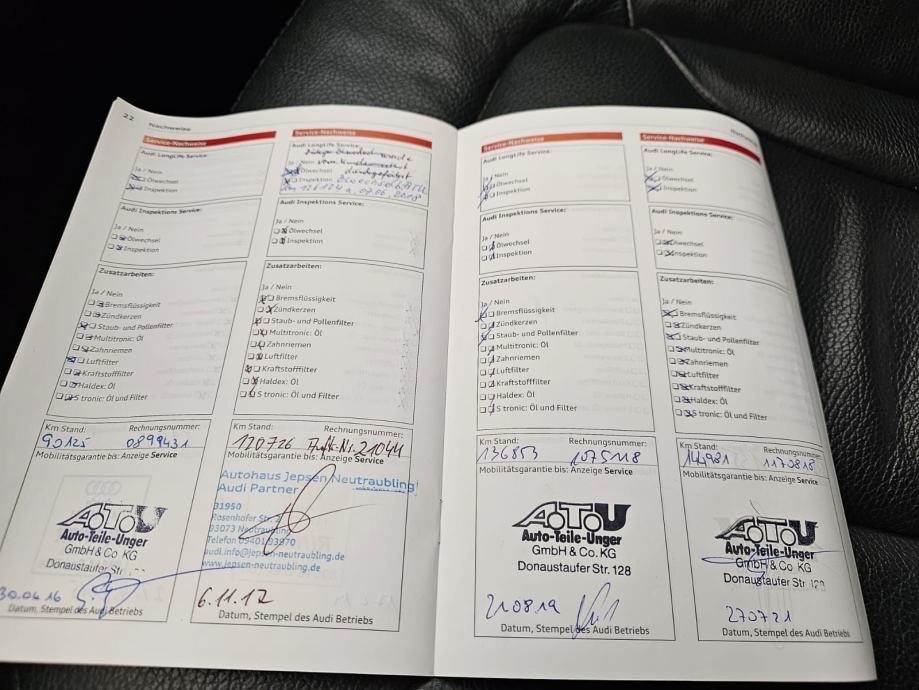 22
Nachweise
Service-Nachweise
Audi LongLife Service:
Ja / Nein
Ölwechsel
Inspektion
Audi Inspektions Service:
Ja / Nein
Ölwechsel
Inspektion
Zusatzarbeiten:
Ja / Nein
Bremsflüssigkeit
Zündkerzen
Staub- und Pollenfilter
Multitronic: Öl
Zahnriemen
Luftfilter
Kraftstofffilter
Haldex: Öl
S tronic: Öl und Filter
Km Stand: Rechnungsnummer:
90125 0899431
Mobilitätsgarantie bis: Anzeige Service
ATU
Auto-Teile-Unger
GmbH & Co KG
Donaustaufer Str.
30.06.16
Datum, Stempel des Audi Betriebs
Service-Nachweise
Audi LongLife Service:
wurde
Ja / Nein vom
Ölwechsel durchgeführt
Inspektion
Audi Inspektions Service:
Ja / Nein
Ölwechsel
Inspektion
Zusatzarbeiten:
Ja / Nein
Bremsflüssigkeit
Zündkerzen
Staub- und Pollenfilter
Multitronic: Öl
Zahnriemen
Luftfilter
Kraftstofffilter
Haldex: Öl
S tronic: Öl und Filter
Km Stand: Rechnungsnummer:
120726 21044
Mobilitätsgarantie bis: Anzeige Service
Autohaus Jepsen Neutraubling
Audi Partner
31950
Rosenhofer Str. 2
93073 Neutraubling
Telefon 09401/93970
audi.info@jepsen-neutraubling.de
www.jepsen-neutraubling.de
6.11.17
Datum, Stempel des Audi Betriebs
Service-Nachweise
Audi LongLife Service:
Ja / Nein
Ölwechsel
Inspektion
Audi Inspektions Service:
Ja / Nein
Ölwechsel
Inspektion
Zusatzarbeiten:
Ja / Nein
Bremsflüssigkeit
Zündkerzen
Staub- und Pollenfilter
Multitronic: Öl
Zahnriemen
Luftfilter
Kraftstofffilter
Haldex: Öl
S tronic: Öl und Filter
Km Stand: Rechnungsnummer:
136853 1075118
Mobilitätsgarantie bis: Anzeige Service
ATU
Auto-Teile-Unger
GmbH & Co. KG
Donaustaufer Str. 128
210819
Datum, Stempel des Audi Betriebs
Service-Nachweise
Audi LongLife Service:
Ja / Nein
Ölwechsel
Inspektion
Audi Inspektions Service:
Ja / Nein
Ölwechsel
Inspektion
Zusatzarbeiten:
Ja / Nein
Bremsflüssigkeit
Zündkerzen
Staub- und Pollenfilter
Multitronic: Öl
Zahnriemen
Luftfilter
Kraftstofffilter
Haldex: Öl
S tronic: Öl und Filter
Km Stand: Rechnungsnummer:
144981 1170818
Mobilitätsgarantie bis: Anzeige Service
ATU
Auto-Teile-Unger
GmbH & Co KG
Donaustaufer Str.
270721
Datum, Stempel des Audi Betriebs